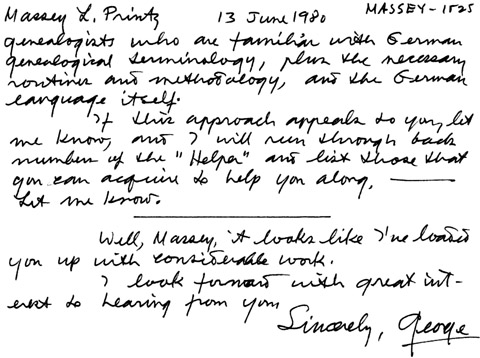 Massey L. Printz 13 June 1980 MASSEY-1525
genealogists who are familiar with German
genealogical terminology, plus the necessary
routines and methodology, and the German
language itself.
If this approach appeals to you, let
me know, and I will run through back
numbers of the "Helper" and list those that
you can acquire to help you along.
Let me know.
Well, Massey, it looks like I've loaded
you up with considerable work.
I look forward with great int-
erest to hearing from you
Sincerely, George